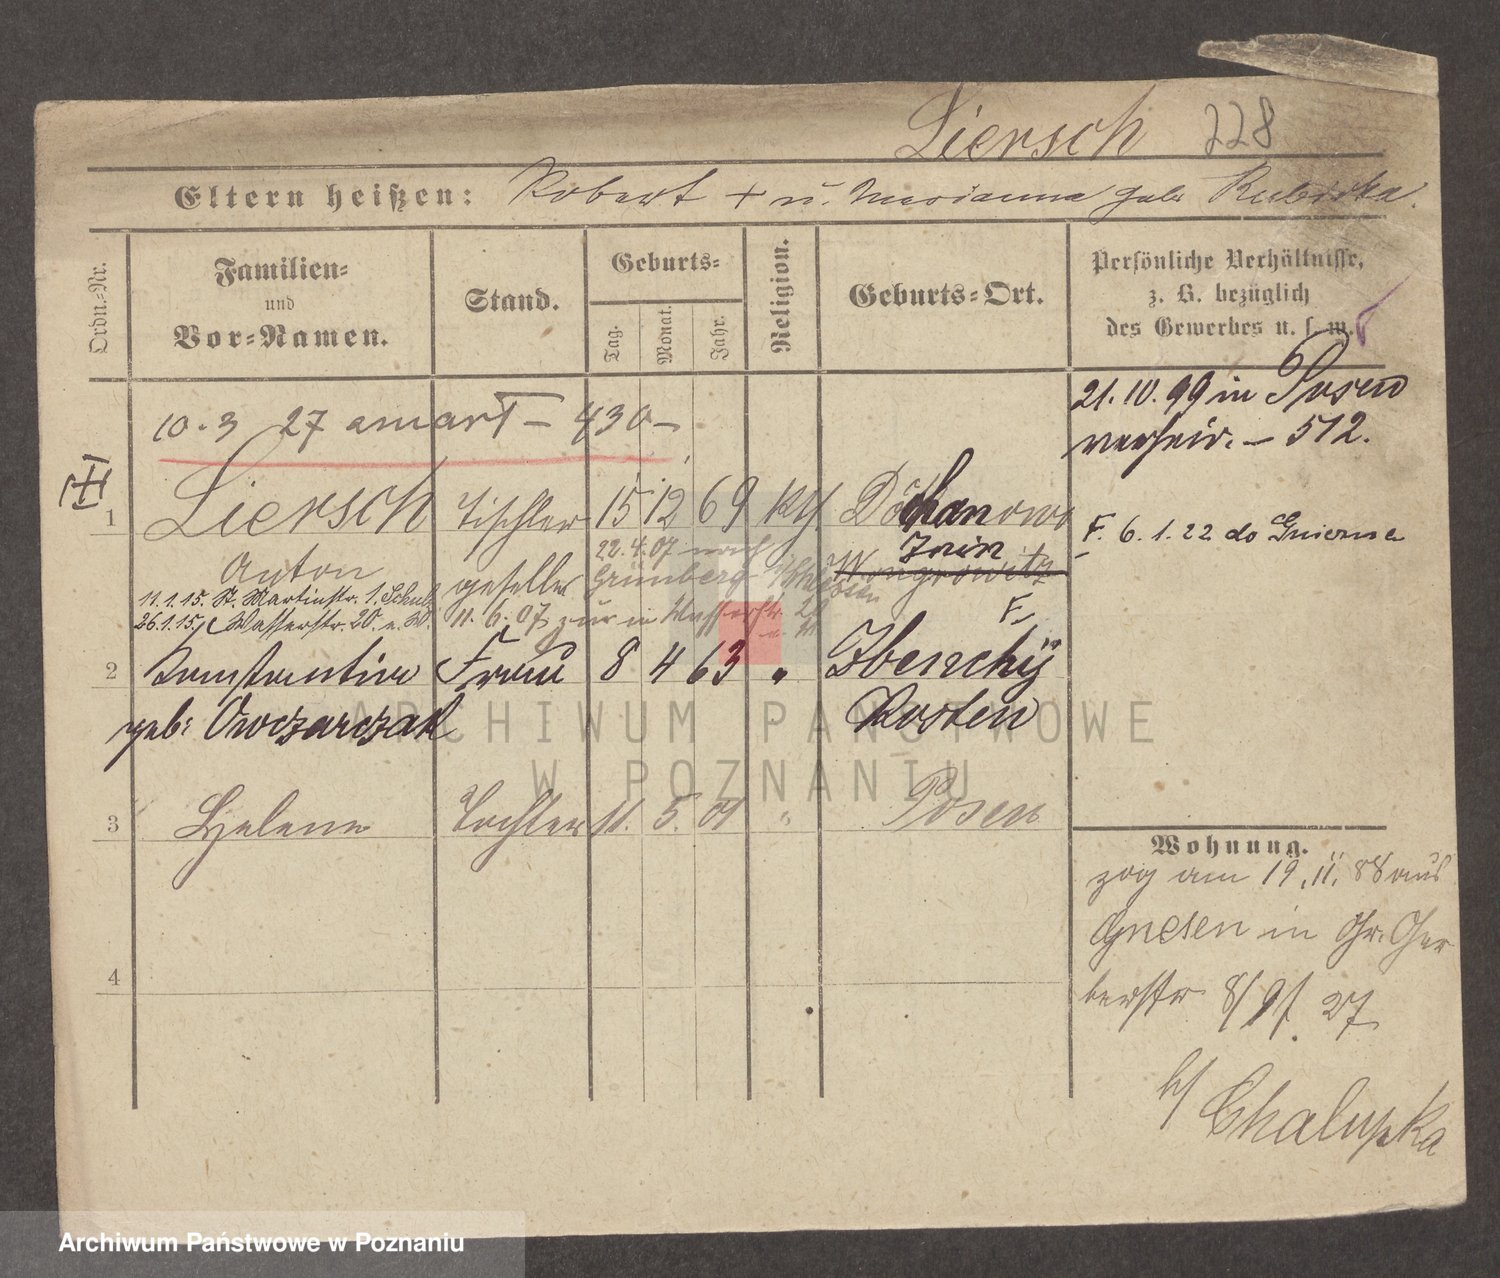 Liersch 228
Eltern heißen: Robert + u. Marianna geb. Rubiska.
Ordn.-Nr.
Familien-
und
Vor-Namen.
Stand.
Geburts-
Tag.
Monat.
Jahr.
Religion.
Geburts-Ort.
Persönliche Verhältnisse,
z. B. bezüglich
des Gewerbes u. s. w.
10.3 27 - 430 -
21.10.99 in Posen
verheir. - 512.
1 Liersch Tischler 15 12 69 kth
Anton geselle
Znin
Wongrowitz
F. 6.1.22 do Gniezna
22.4.07 nach
Grünberg
11.1.15. St. Martinstr. 1. Schulz
26.1.15 Wasserstr. 20. u. W.
11.6.07 zur. in Wasserstr. 20
F.
2 Konstantine Frau 8 4 63 " Zbenchy
geb: Owczarczak Kosten
3 Helene Tochter 11. 5. 01 " Posen
4
Wohnung.
zog am 19.11.88 aus
Gnesen in Gr. Ger
berstr 8/9/. 27
b/ Chalupka
ARCHIWUM PAŃSTWOWE
W POZNANIU
Archiwum Państwowe w Poznaniu